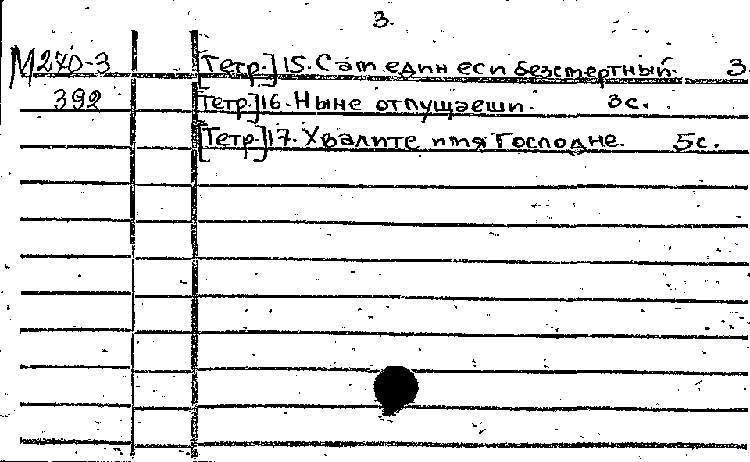 3.
М270-3 [Тетр.] 15. Сам един еси безсмертный. 3
392 [Тетр.] 16. Ныне отпущаеши. 3с.
[Тетр.] 17. Хвалите имя Господне. 5с.